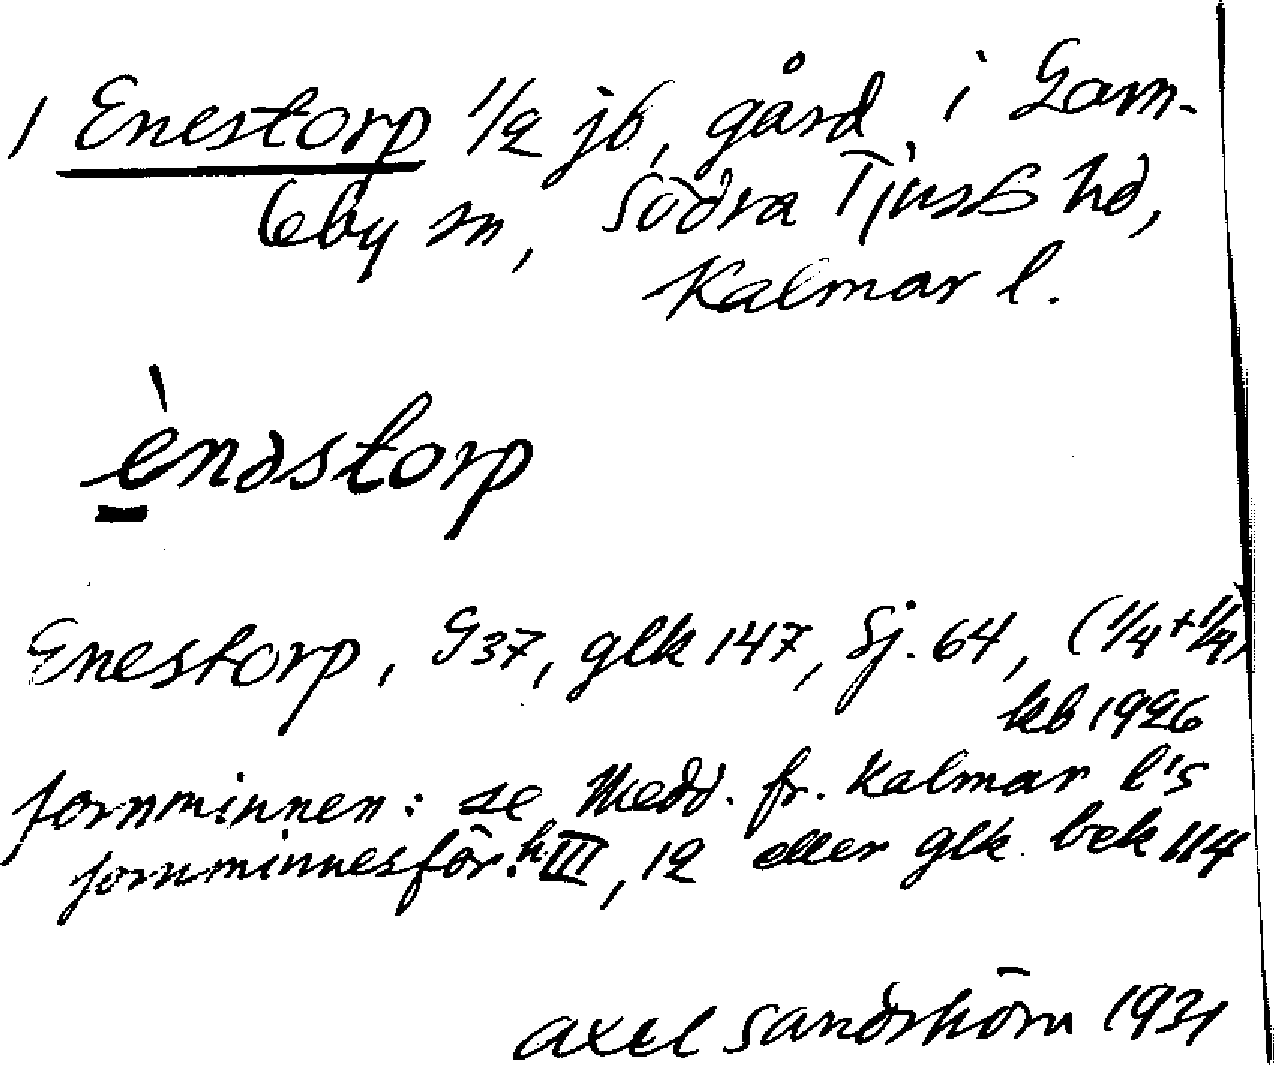 1 Enestorp 1/2 jb, gård i Gam-
leby sn, Södra Tjusts hd,
Kalmar l.
ènəstorp
Enestorp, G37, glk 147, Sj. 64, (1/4+1/4)
kb 1926
fornminnen: se Medd. fr. Kalmar l's
fornminnesför. h III, 12 eller glk. bek 114
Axel Sandström 1931